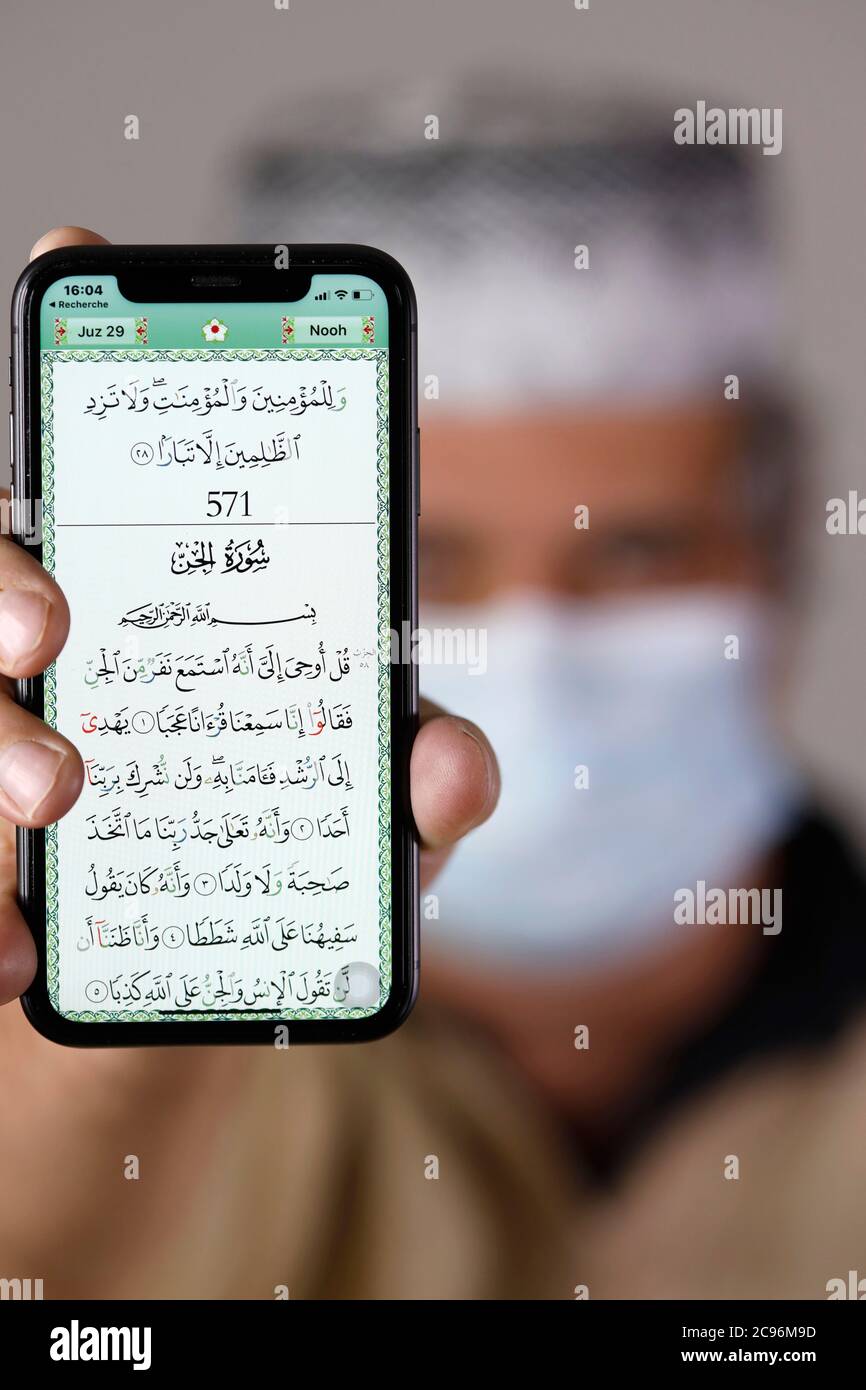 16:04
◄ Recherche
Juz 29
Nooh
وَلِلْمُؤْمِنِينَ وَٱلْمُؤْمِنَٰتِۖ وَلَا تَزِدِ
ٱلظَّٰلِمِينَ إِلَّا تَبَارَۢا ٢٨
571
سُورَةُ الجِنِّ
بِسْمِ ٱللَّهِ ٱلرَّحْمَٰنِ ٱلرَّحِيمِ
قُلْ أُوحِىَ إِلَىَّ أَنَّهُ ٱسْتَمَعَ نَفَرٌ مِّنَ ٱلْجِنِّ
الحِزْب ٥٨
فَقَالُوٓا۟ إِنَّا سَمِعْنَا قُرْءَانًا عَجَبًا ١ يَهْدِىٓ
إِلَى ٱلرُّشْدِ فَـَٔامَنَّا بِهِۦۖ وَلَن نُّشْرِكَ بِرَبِّنَآ
أَحَدًا ٢ وَأَنَّهُۥ تَعَٰلَىٰ جَدُّ رَبِّنَا مَا ٱتَّخَذَ
صَٰحِبَةً وَلَا وَلَدًا ٣ وَأَنَّهُۥ كَانَ يَقُولُ
سَفِيهُنَا عَلَى ٱللَّهِ شَطَطًا ٤ وَأَنَّا ظَنَنَّآ أَن
لَّن تَقُولَ ٱلْإِنسُ وَٱلْجِنُّ عَلَى ٱللَّهِ كَذِبًا ٥
alamy
alamy
alamy
a
a
a
a
a
a
a
a
a
a
a
alamy
Image ID: 2C96M9D
www.alamy.com